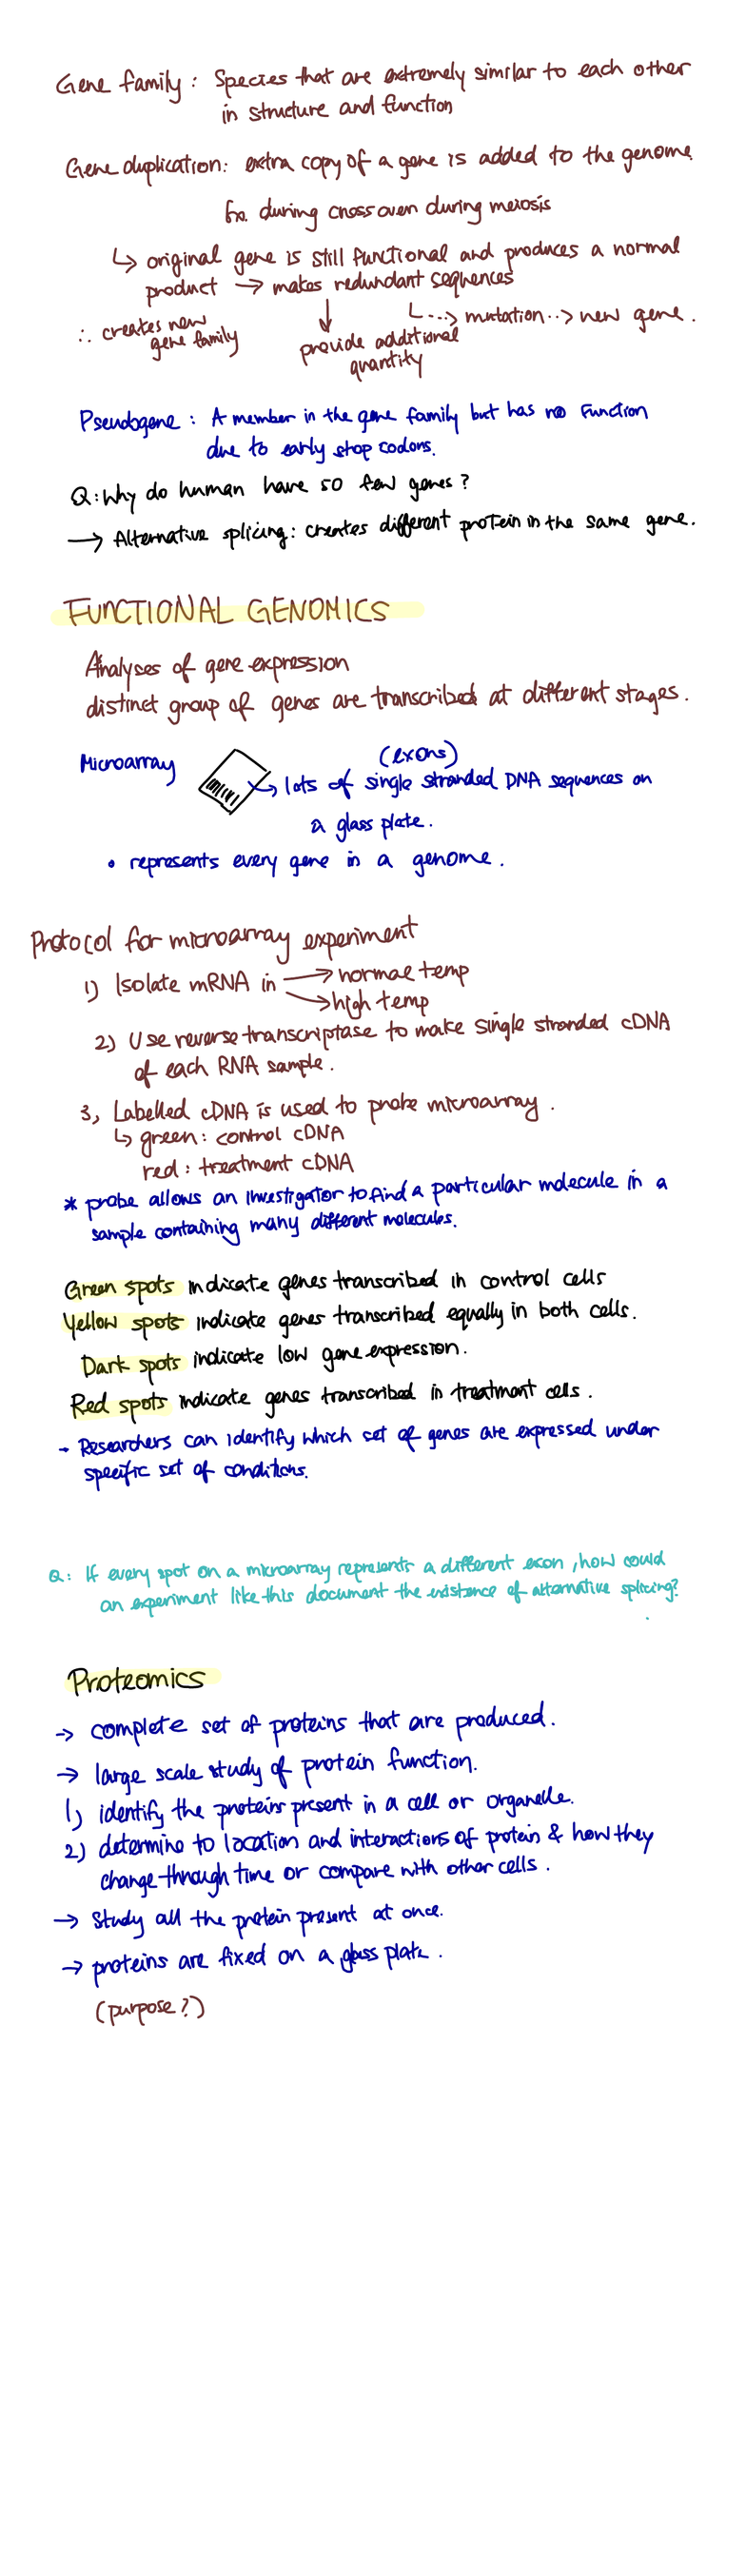 Gene family : Species that are extremely similar to each other
in structure and function
Gene duplication: extra copy of a gene is added to the genome.
Ex. during crossover during meiosis
↳ original gene is still functional and produces a normal
product → makes redundant sequences
↳ mutation → new gene.
∴ creates new
gene family
provide additional
quantity
Pseudogene : A member in the gene family but has no function
due to early stop codons.
Q: Why do human have so few genes?
→ Alternative splicing: creates different protein in the same gene.
FUNCTIONAL GENOMICS
Analyses of gene expression
distinct group of genes are transcribed at different stages.
Microarray
(exons)
→ lots of single stranded DNA sequences on
a glass plate.
• represents every gene in a genome.
Protocol for microarray experiment
1) Isolate mRNA in → normal temp
→ high temp
2) Use reverse transcriptase to make single stranded cDNA
of each RNA sample.
3, Labelled cDNA is used to probe microarray.
↳ green: control cDNA
red: treatment cDNA
* probe allows an investigator to find a particular molecule in a
sample containing many different molecules.
Green spots indicate genes transcribed in control cells
Yellow spots indicate genes transcribed equally in both cells.
Dark spots indicate low gene expression.
Red spots indicate genes transcribed in treatment cells.
- Researchers can identify which set of genes are expressed under
specific set of conditions.
Q: If every spot on a microarray represents a different exon, how could
an experiment like this document the existence of alternative splicing?
Proteomics
→ complete set of proteins that are produced.
→ large scale study of protein function.
1) identify the proteins present in a cell or organelle.
2) determine to location and interactions of protein & how they
change through time or compare with other cells.
→ Study all the protein present at once.
→ proteins are fixed on a glass plate.
(purpose?)